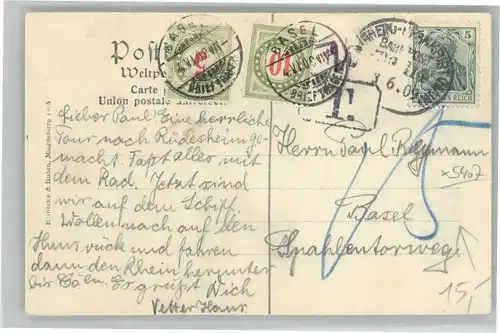 Post
Weltpo
Carte
Union postale
BASEL
BRIEFTRÄGER
BASEL
4.VI.09
BRIEFTRÄGER
5
10
T.
5
S REICH
Lieber Paul! Eine herrliche
Tour nach Rüdesheim ge-
macht. Fasst alles mit
dem Rad. Jetzt sind
wir auf dem Schiff.
Wollen nach auf den
Hunsrück und fahren
dann den Rhein herunter
bis Cöln. Es grüsst Dich
Vetter Hans
Herrn Paul
Basel
Spahlentorweg
x5407
15,-